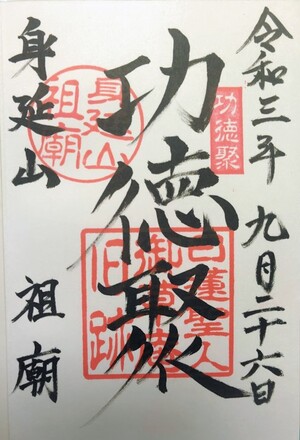 令和三年 九月二十六日
功徳聚
功徳聚
日蓮聖人
御草庵
旧跡
身延山
祖廟
身延山 祖廟